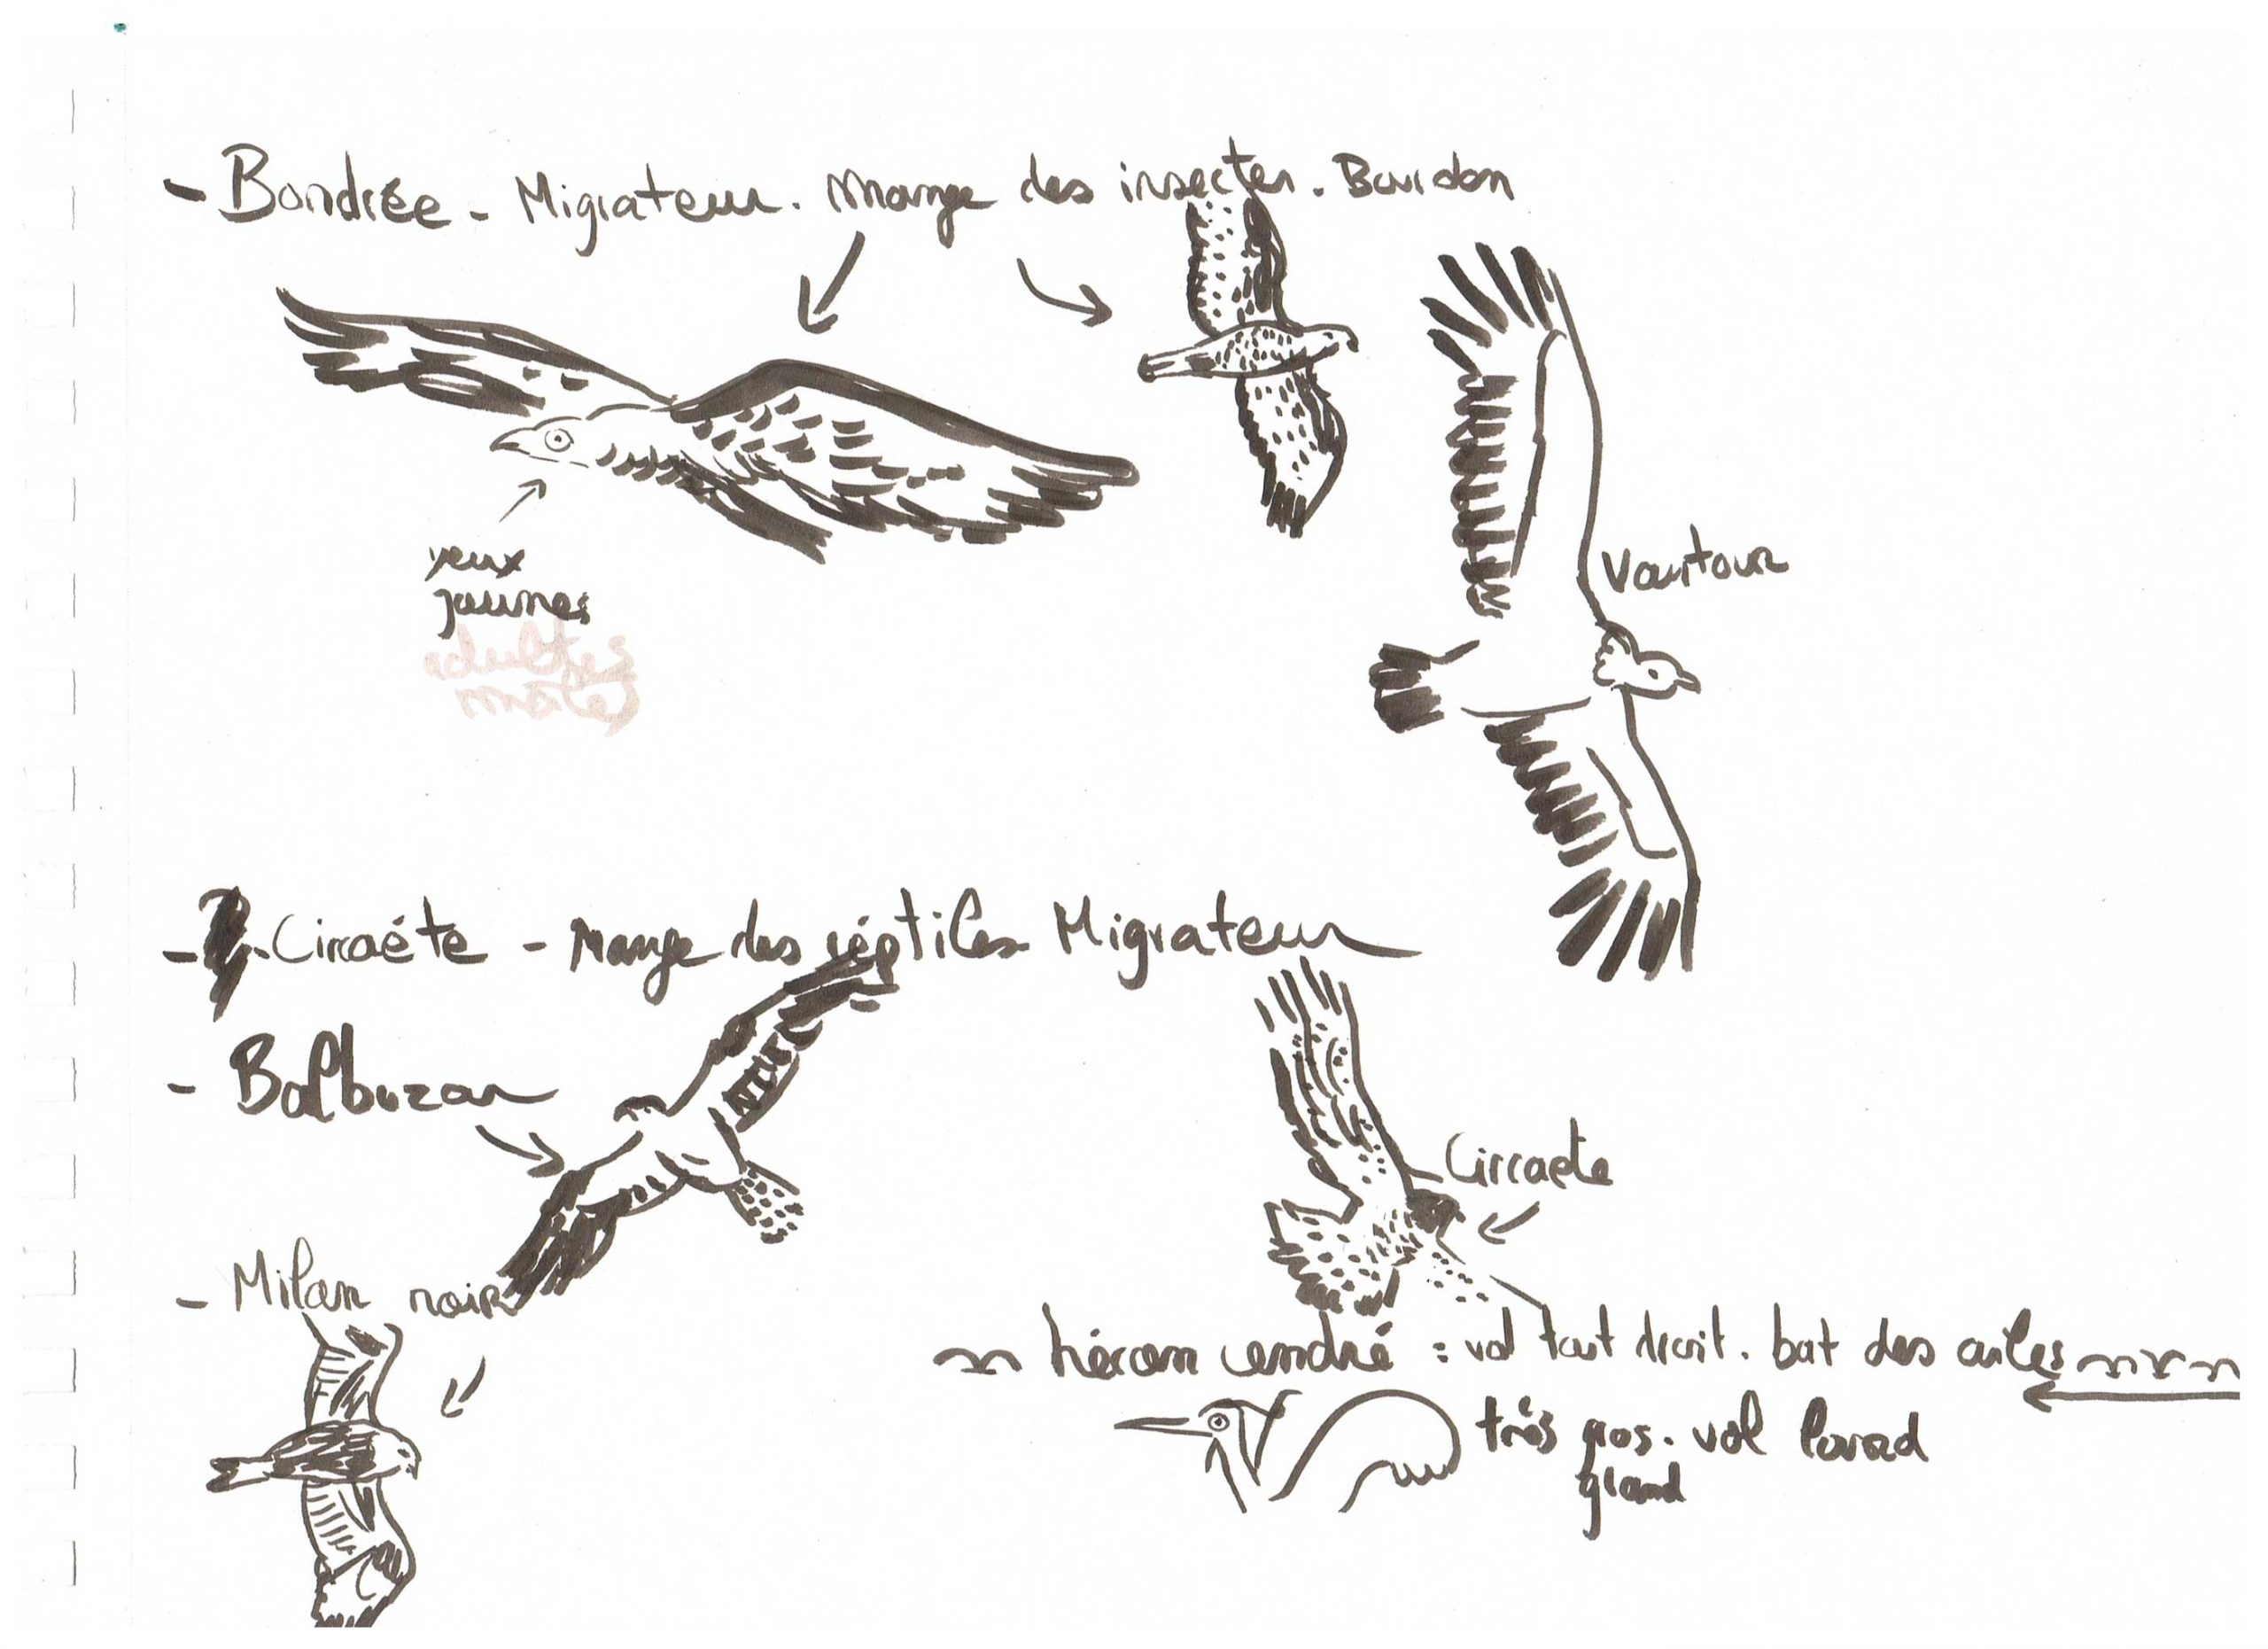 - Bondrée - Migrateur. Mange des insectes. Bourdon
yeux
jaunes
adultes
mâles
Vautour
- Circaéte - Mange des réptiles Migrateur
- Balbuzar
Circaete
- Milan noir
héron cendré : vol tout droit. bat des ailes
très gros. vol lourd
grand